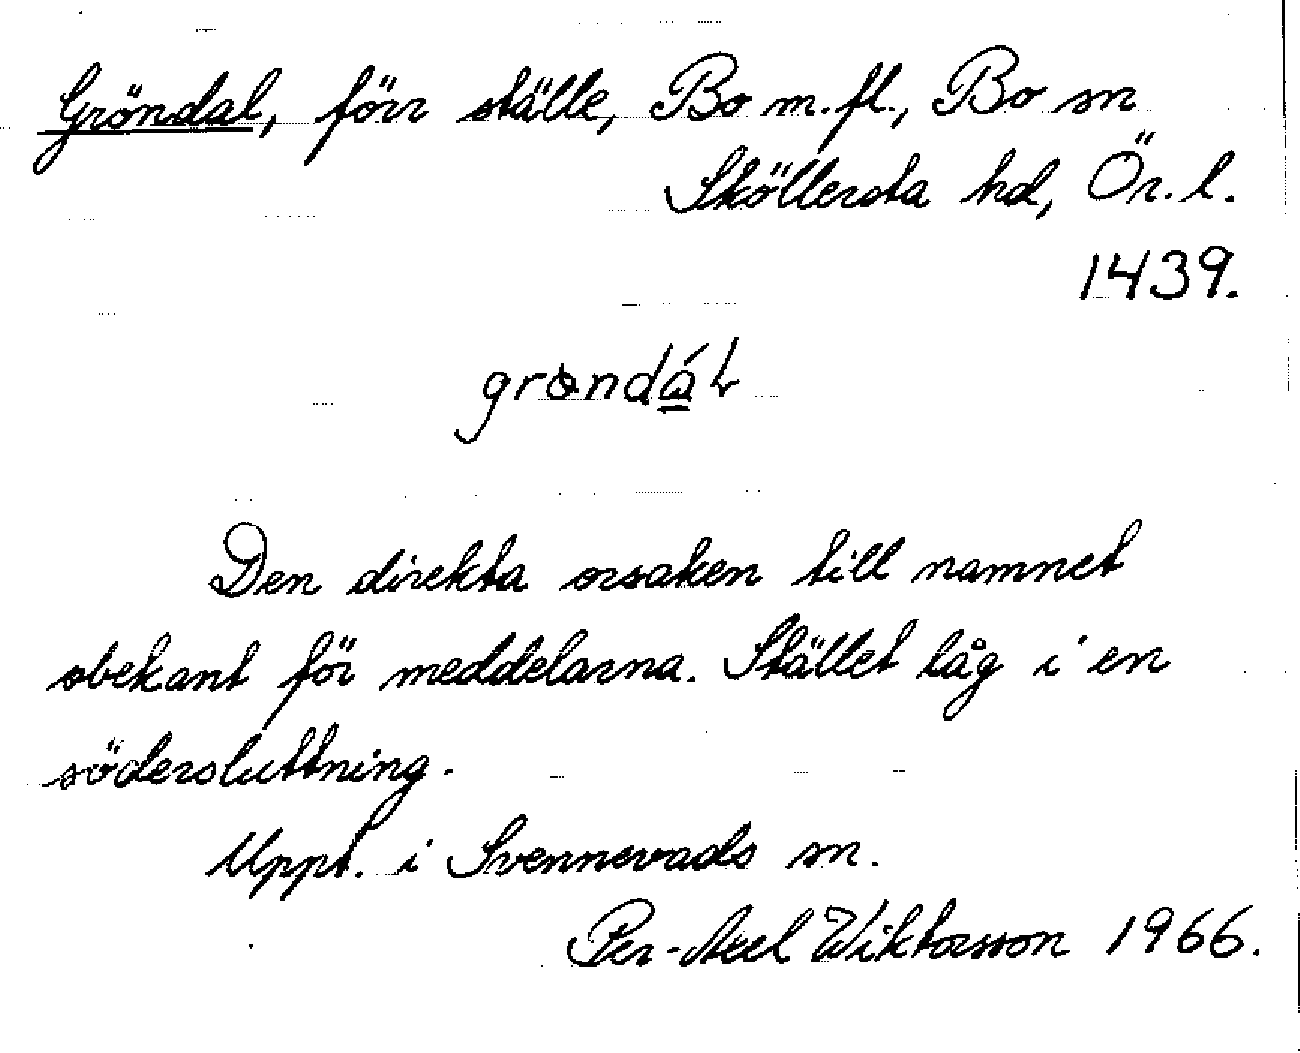 Gröndal, förr ställe, Bo m.fl., Bo sn
Sköllersta hd, Ör. l.
1439.
Den direkta orsaken till namnet
obekant för meddelarna. Stället låg i en
södersluttning.
Uppt. i Svennevads sn.
Per-Axel Wiktorsson 1966.